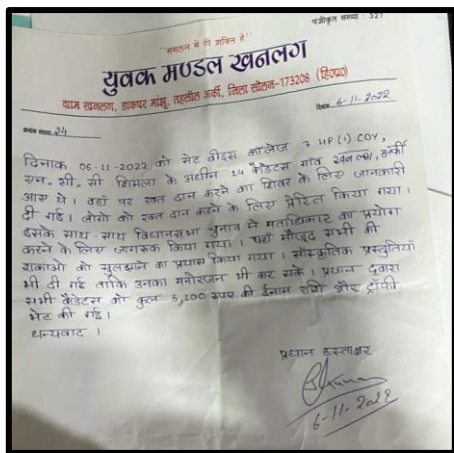 पंजीकृत संख्या : 327
"संगठन में ही शक्ति है"
युवक मण्डल खनलग
ग्राम खनलग, डाकघर मांझू, तहसील अर्की, जिला सोलन-173208 (हि०प्र०)
क्रमांक संख्या 24
दिनांक 6-11-2022
दिनांक 06-11-2022 को सेंट बीड्स कॉलेज 7 HP (1) COY,
एन.सी.सी शिमला के अधीन 14 कैडेटस गाँव खनलग, अर्की
आए थे। वहाँ पर रक्त दान करने का शिवर के लिए जानकारी
दी गई। लोगों को रक्त दान करने के लिए प्रेरित किया गया।
इसके साथ-साथ विधानसभा चुनाव में मताधिकार का प्रयोग
करने के लिए जागरूक किया गया। यहाँ मौजूद सभी की
शंकाओं को सुलझाने का प्रयास किया गया। सांस्कृतिक प्रस्तुतियाँ
भी दी गई ताकि उनका मनोरंजन भी कर सके। प्रधान द्वारा
सभी कैडेटस को कुल 5,100 रुपए की ईनाम राशि और ट्रॉफी
भेंट की गई।
धन्यवाद ।
प्रधान हस्ताक्षर
6-11-2022